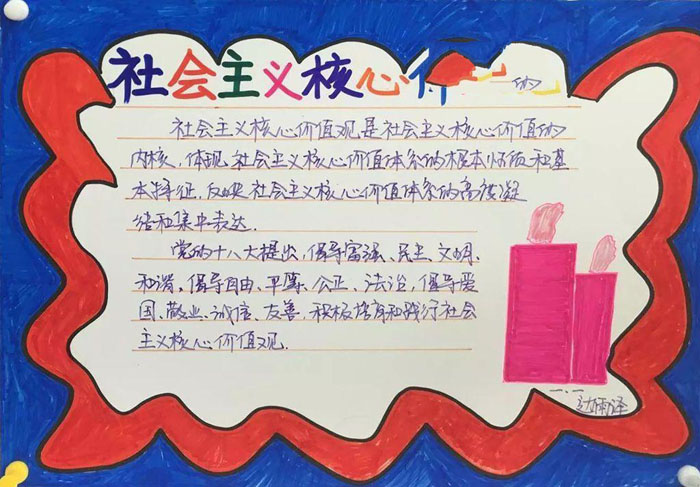 社会主义核心价
社会主义核心价值观是社会主义核心价值的
内核，体现社会主义核心价值体系的根本性质和基
本特征，反映社会主义核心价值体系的高度凝
结和集中表达.
党的十八大提出，倡导富强、民主、文明、
和谐、倡导自由、平等、公正、法治，倡导爱
国、敬业、诚信、友善，积极培育和践行社会
主义核心价值观.